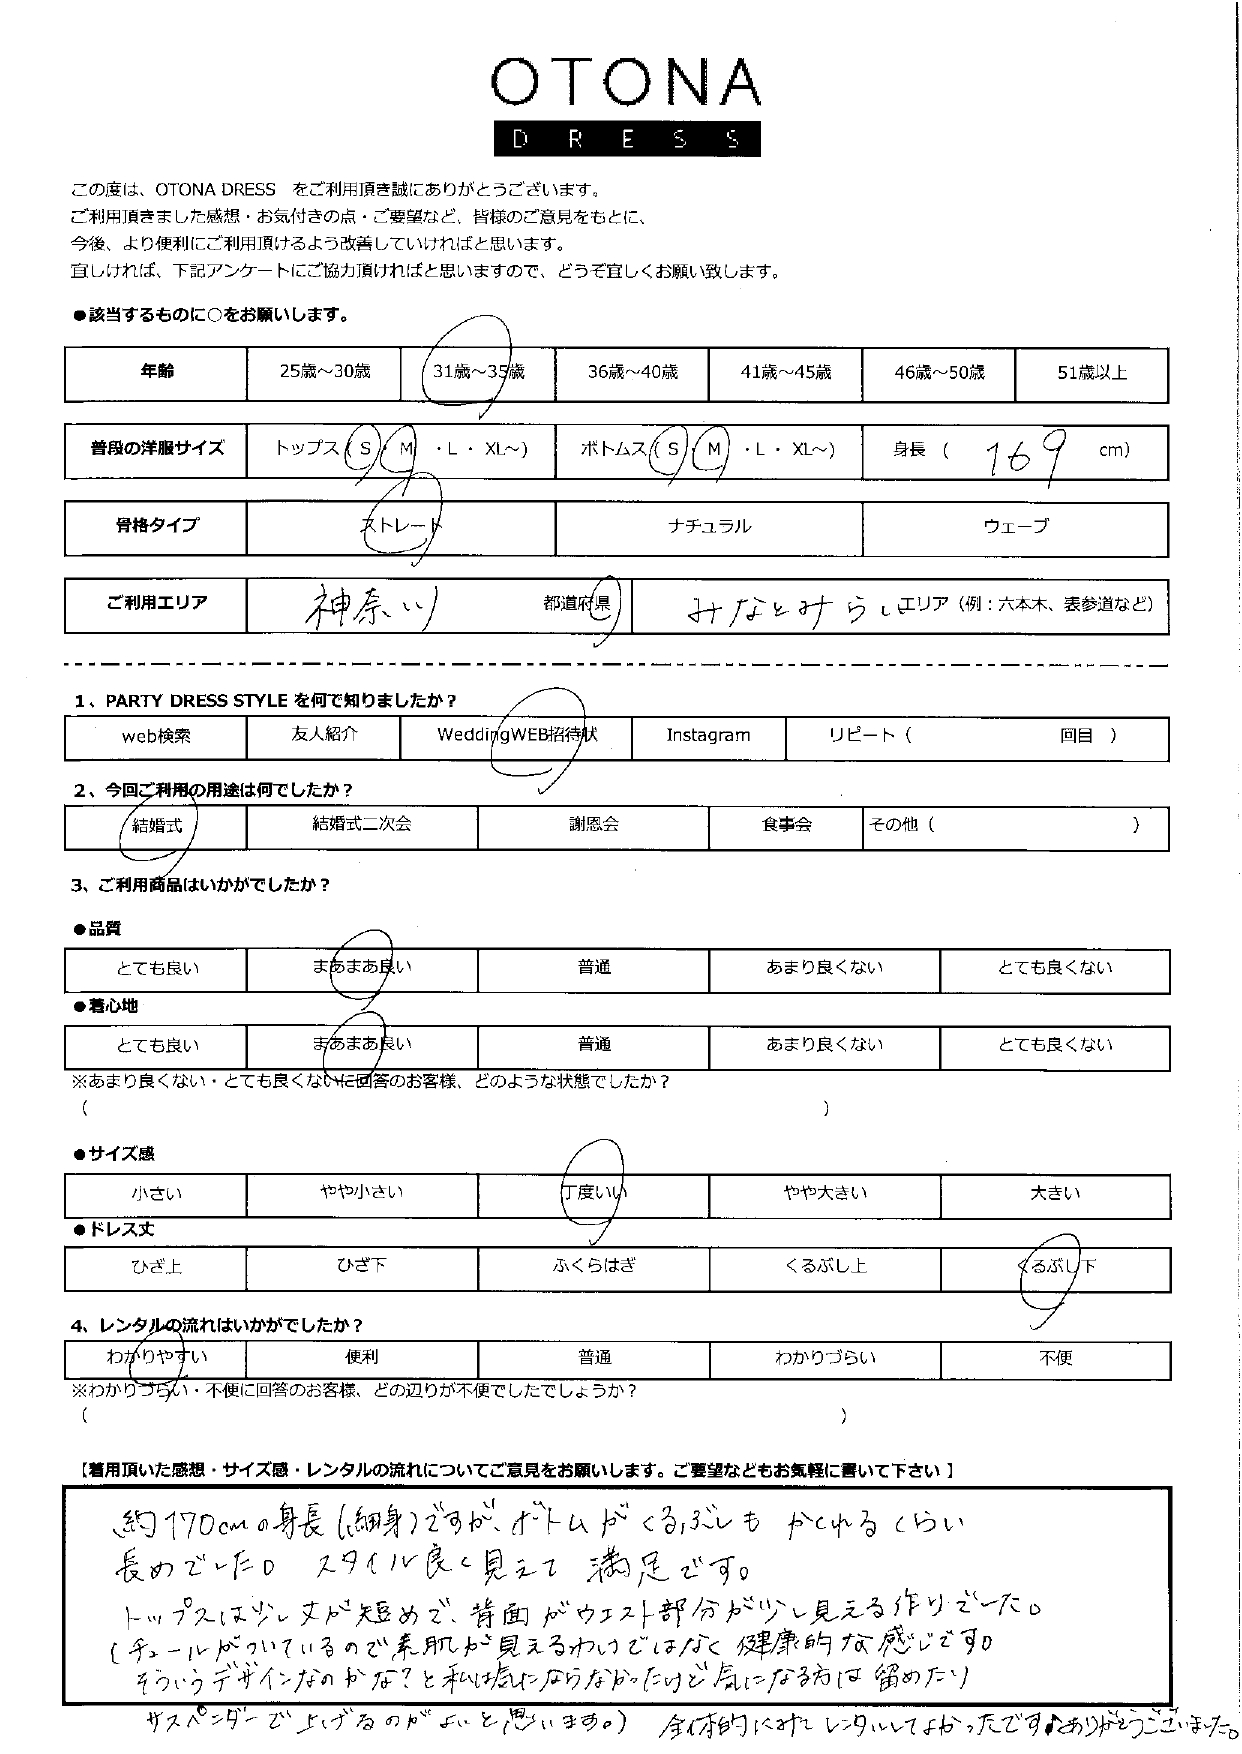 OTONA
DRESS
この度は、OTONA DRESS をご利用頂き誠にありがとうございます。
ご利用頂きました感想・お気付きの点・ご要望など、皆様のご意見をもとに、
今後、より便利にご利用頂けるよう改善していければと思います。
宜しければ、下記アンケートにご協力頂ければと思いますので、どうぞ宜しくお願い致します。
●該当するものに○をお願いします。
年齢 25歳～30歳 31歳～35歳 36歳～40歳 41歳～45歳 46歳～50歳 51歳以上
普段の洋服サイズ トップス(S・M ・L ・ XL～) ボトムス(S・M ・L ・ XL～) 身長 ( 169 cm)
骨格タイプ ストレート ナチュラル ウェーブ
ご利用エリア 神奈川 都道府県 みなとみらい エリア（例：六本木、表参道など）
1、PARTY DRESS STYLE を何で知りましたか？
web検索 友人紹介 WeddingWEB招待状 Instagram リピート（ 回目 ）
2、今回ご利用の用途は何でしたか？
結婚式 結婚式二次会 謝恩会 食事会 その他（ ）
3、ご利用商品はいかがでしたか？
●品質
とても良い まあまあ良い 普通 あまり良くない とても良くない
●着心地
とても良い まあまあ良い 普通 あまり良くない とても良くない
※あまり良くない・とても良くないに回答のお客様、どのような状態でしたか？
（ ）
●サイズ感
小さい やや小さい 丁度いい やや大きい 大きい
●ドレス丈
ひざ上 ひざ下 ふくらはぎ くるぶし上 くるぶし下
4、レンタルの流れはいかがでしたか？
わかりやすい 便利 普通 わかりづらい 不便
※わかりづらい・不便に回答のお客様、どの辺りが不便でしたでしょうか？
（ ）
【着用頂いた感想・サイズ感・レンタルの流れについてご意見をお願いします。ご要望などもお気軽に書いて下さい】
約170cmの身長(細身)ですが、ボトムがくるぶしもかくれるくらい
長めでした。スタイル良く見えて満足です。
トップスは少し丈が短めで、背面がウエスト部分が少し見える作りでした。
(チュールがついているので素肌が見えるわけではなく健康的な感じです。
そういうデザインなのかな？と私は気にならなかったけど気になる方は留めたり
サスペンダーで上げるのがよいと思います。) 全体的にみてレンタルしてよかったです♪ありがとうございました。